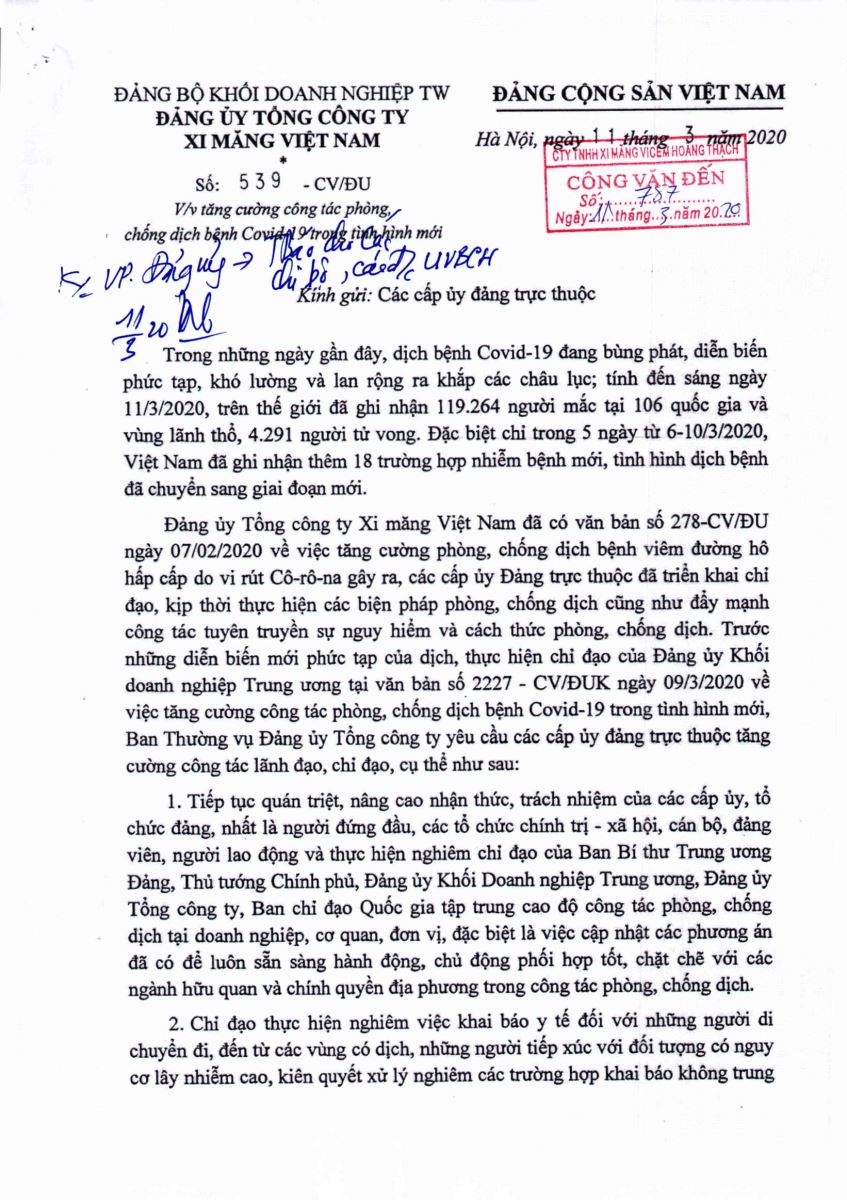 ĐẢNG BỘ KHỐI DOANH NGHIỆP TW
ĐẢNG ỦY TỔNG CÔNG TY
XI MĂNG VIỆT NAM
*
Số: 539 - CV/ĐU
V/v tăng cường công tác phòng,
chống dịch bệnh Covid-19 trong tình hình mới
ĐẢNG CỘNG SẢN VIỆT NAM
Hà Nội, ngày 11 tháng 3 năm 2020
CTY TNHH XI MĂNG VICEM HOÀNG THẠCH
CÔNG VĂN ĐẾN
Số: 787
Ngày: 11 tháng 3 năm 2020
VP. Đảng ủy → các
chi bộ, các đ/c UVBCH
11/3 20
Kính gửi: Các cấp ủy đảng trực thuộc
Trong những ngày gần đây, dịch bệnh Covid-19 đang bùng phát, diễn biến
phức tạp, khó lường và lan rộng ra khắp các châu lục; tính đến sáng ngày
11/3/2020, trên thế giới đã ghi nhận 119.264 người mắc tại 106 quốc gia và
vùng lãnh thổ, 4.291 người tử vong. Đặc biệt chỉ trong 5 ngày từ 6-10/3/2020,
Việt Nam đã ghi nhận thêm 18 trường hợp nhiễm bệnh mới, tình hình dịch bệnh
đã chuyển sang giai đoạn mới.
Đảng ủy Tổng công ty Xi măng Việt Nam đã có văn bản số 278-CV/ĐU
ngày 07/02/2020 về việc tăng cường phòng, chống dịch bệnh viêm đường hô
hấp cấp do vi rút Cô-rô-na gây ra, các cấp ủy Đảng trực thuộc đã triển khai chỉ
đạo, kịp thời thực hiện các biện pháp phòng, chống dịch cũng như đẩy mạnh
công tác tuyên truyền sự nguy hiểm và cách thức phòng, chống dịch. Trước
những diễn biến mới phức tạp của dịch, thực hiện chỉ đạo của Đảng ủy Khối
doanh nghiệp Trung ương tại văn bản số 2227 - CV/ĐUK ngày 09/3/2020 về
việc tăng cường công tác phòng, chống dịch bệnh Covid-19 trong tình hình mới,
Ban Thường vụ Đảng ủy Tổng công ty yêu cầu các cấp ủy đảng trực thuộc tăng
cường công tác lãnh đạo, chỉ đạo, cụ thể như sau:
1. Tiếp tục quán triệt, nâng cao nhận thức, trách nhiệm của các cấp ủy, tổ
chức đảng, nhất là người đứng đầu, các tổ chức chính trị - xã hội, cán bộ, đảng
viên, người lao động và thực hiện nghiêm chỉ đạo của Ban Bí thư Trung ương
Đảng, Thủ tướng Chính phủ, Đảng ủy Khối Doanh nghiệp Trung ương, Đảng ủy
Tổng công ty, Ban chỉ đạo Quốc gia tập trung cao độ công tác phòng, chống
dịch tại doanh nghiệp, cơ quan, đơn vị, đặc biệt là việc cập nhật các phương án
đã có để luôn sẵn sàng hành động, chủ động phối hợp tốt, chặt chẽ với các
ngành hữu quan và chính quyền địa phương trong công tác phòng, chống dịch.
2. Chỉ đạo thực hiện nghiêm việc khai báo y tế đối với những người di
chuyển đi, đến từ các vùng có dịch, những người tiếp xúc với đối tượng có nguy
cơ lây nhiễm cao, kiên quyết xử lý nghiêm các trường hợp khai báo không trung